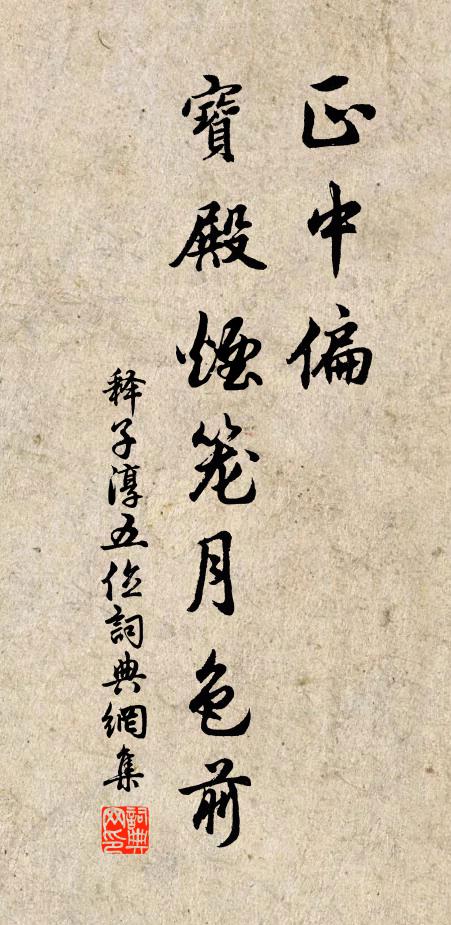 正中偏
寶殿煙笼月色前
释子淳五位詞典網集
詞典网印